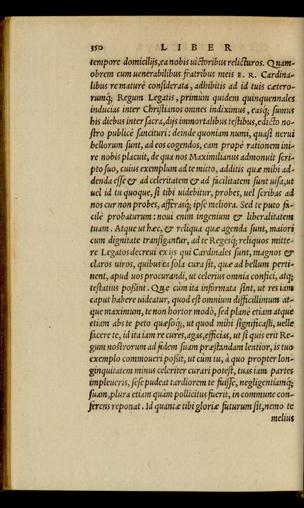 350 LIBER
tempore domicilijs, ea nobis uictoribus relicturos. Quam-
obrem cum uenerabilibus fratribus meis E. R. Cardina-
libus re mature considerata, adhibitis ad id tuis cætero-
rumq; Regum Legatis, primùm quidem quinquennales
inducias inter Christianos omnes indiximus, easq; sumus
his diebus inter sacra, dijs immortalibus testibus, edicto no-
stro publicè sancituri: deinde quoniam numi, quasi nerui
bellorum sunt, ad eos cogendos, eam propè rationem ini-
re nobis placuit, de qua nos Maximilianus admonuit scri-
pto suo, cuius exemplum ad te mitto, additis quæ mihi ad-
denda esse & ad celeritatem & ad facilitatem sunt uisa, ut
uel id tu quoque, si tibi uidebitur, probes, uel scribas ad
nos cur non probes, afferasq; ipse meliora. Sed te puto fa-
cilè probaturum: noui enim ingenium & liberalitatem
tuam. Atque ut hæc, & reliqua quæ agenda sunt, maiori
cum dignitate transigantur, ad te Regesq; reliquos mitte-
re Legatos decreui ex ijs qui Cardinales sunt, magnos &
claros uiros, quibus ea sola cura sit, quæ ad bellum perti-
nent, apud uos procurandi, ut celerius omnia confici, atq;
testatius possint. Quæ cum ita informata sint, ut res iam
caput habere uideatur, quod est omnium difficillimum at-
que maximum, te non hortor modò, sed planè etiam atque
etiam abs te peto quæsoq;, ut quod mihi significasti, uelle
facere te, id ita iam re cures, agas, efficias, ut si quis erit Re-
gum nostrorum ad fidem suam præstandam lentior, is tuo
exemplo commoueri possit, ut cùm tu, à quo propter lon-
ginquitatem minus celeriter curari potest, tuas iam partes
impleueris, sese pudeat tardiorem te fuisse, negligentiamq;
suam, plura etiam quàm pollicitus fuerit, in commune con-
ferens reponat. Id quantæ tibi gloriæ futurum sit, nemo te
melius